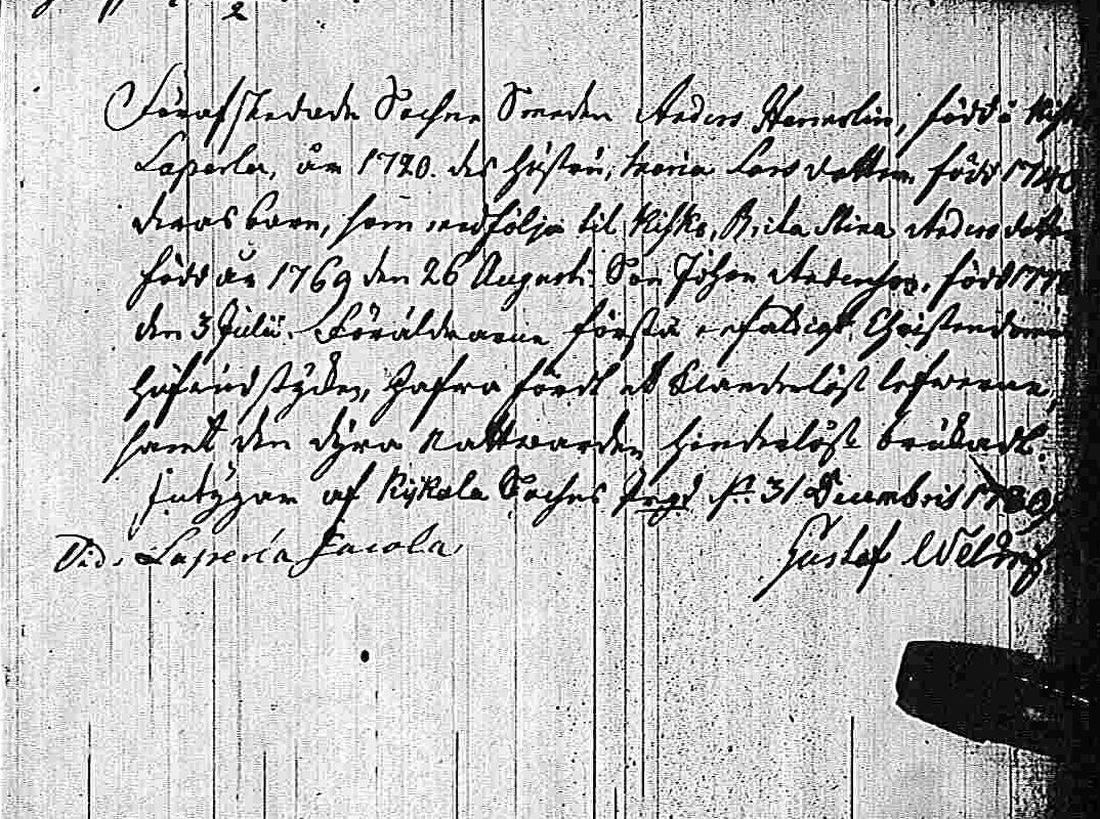 2
Förafskedade Sochne Smeden Anders Hammarlin, född i Kisko
Laperla, år 1720. des hustru, Maria Lars dotter född 1740
deras barn, som medfölja til Kisko, Brita Stina Anders dotter
född år 1769 den 26 Augusti. Son Johan Andersson, född 177
den 3 Julii. Föräldrarne förstå enfaldigt Christendomen
hufvudstycken, Hafva fördt et Klanderlöst lefverne,
samt den dyra Nattvarden hinderlöst brukadt.
intygar af Kijkala Sochns Prgd d. 31 Decembris 1780
Vid. Laperla Jacola. Gustaf